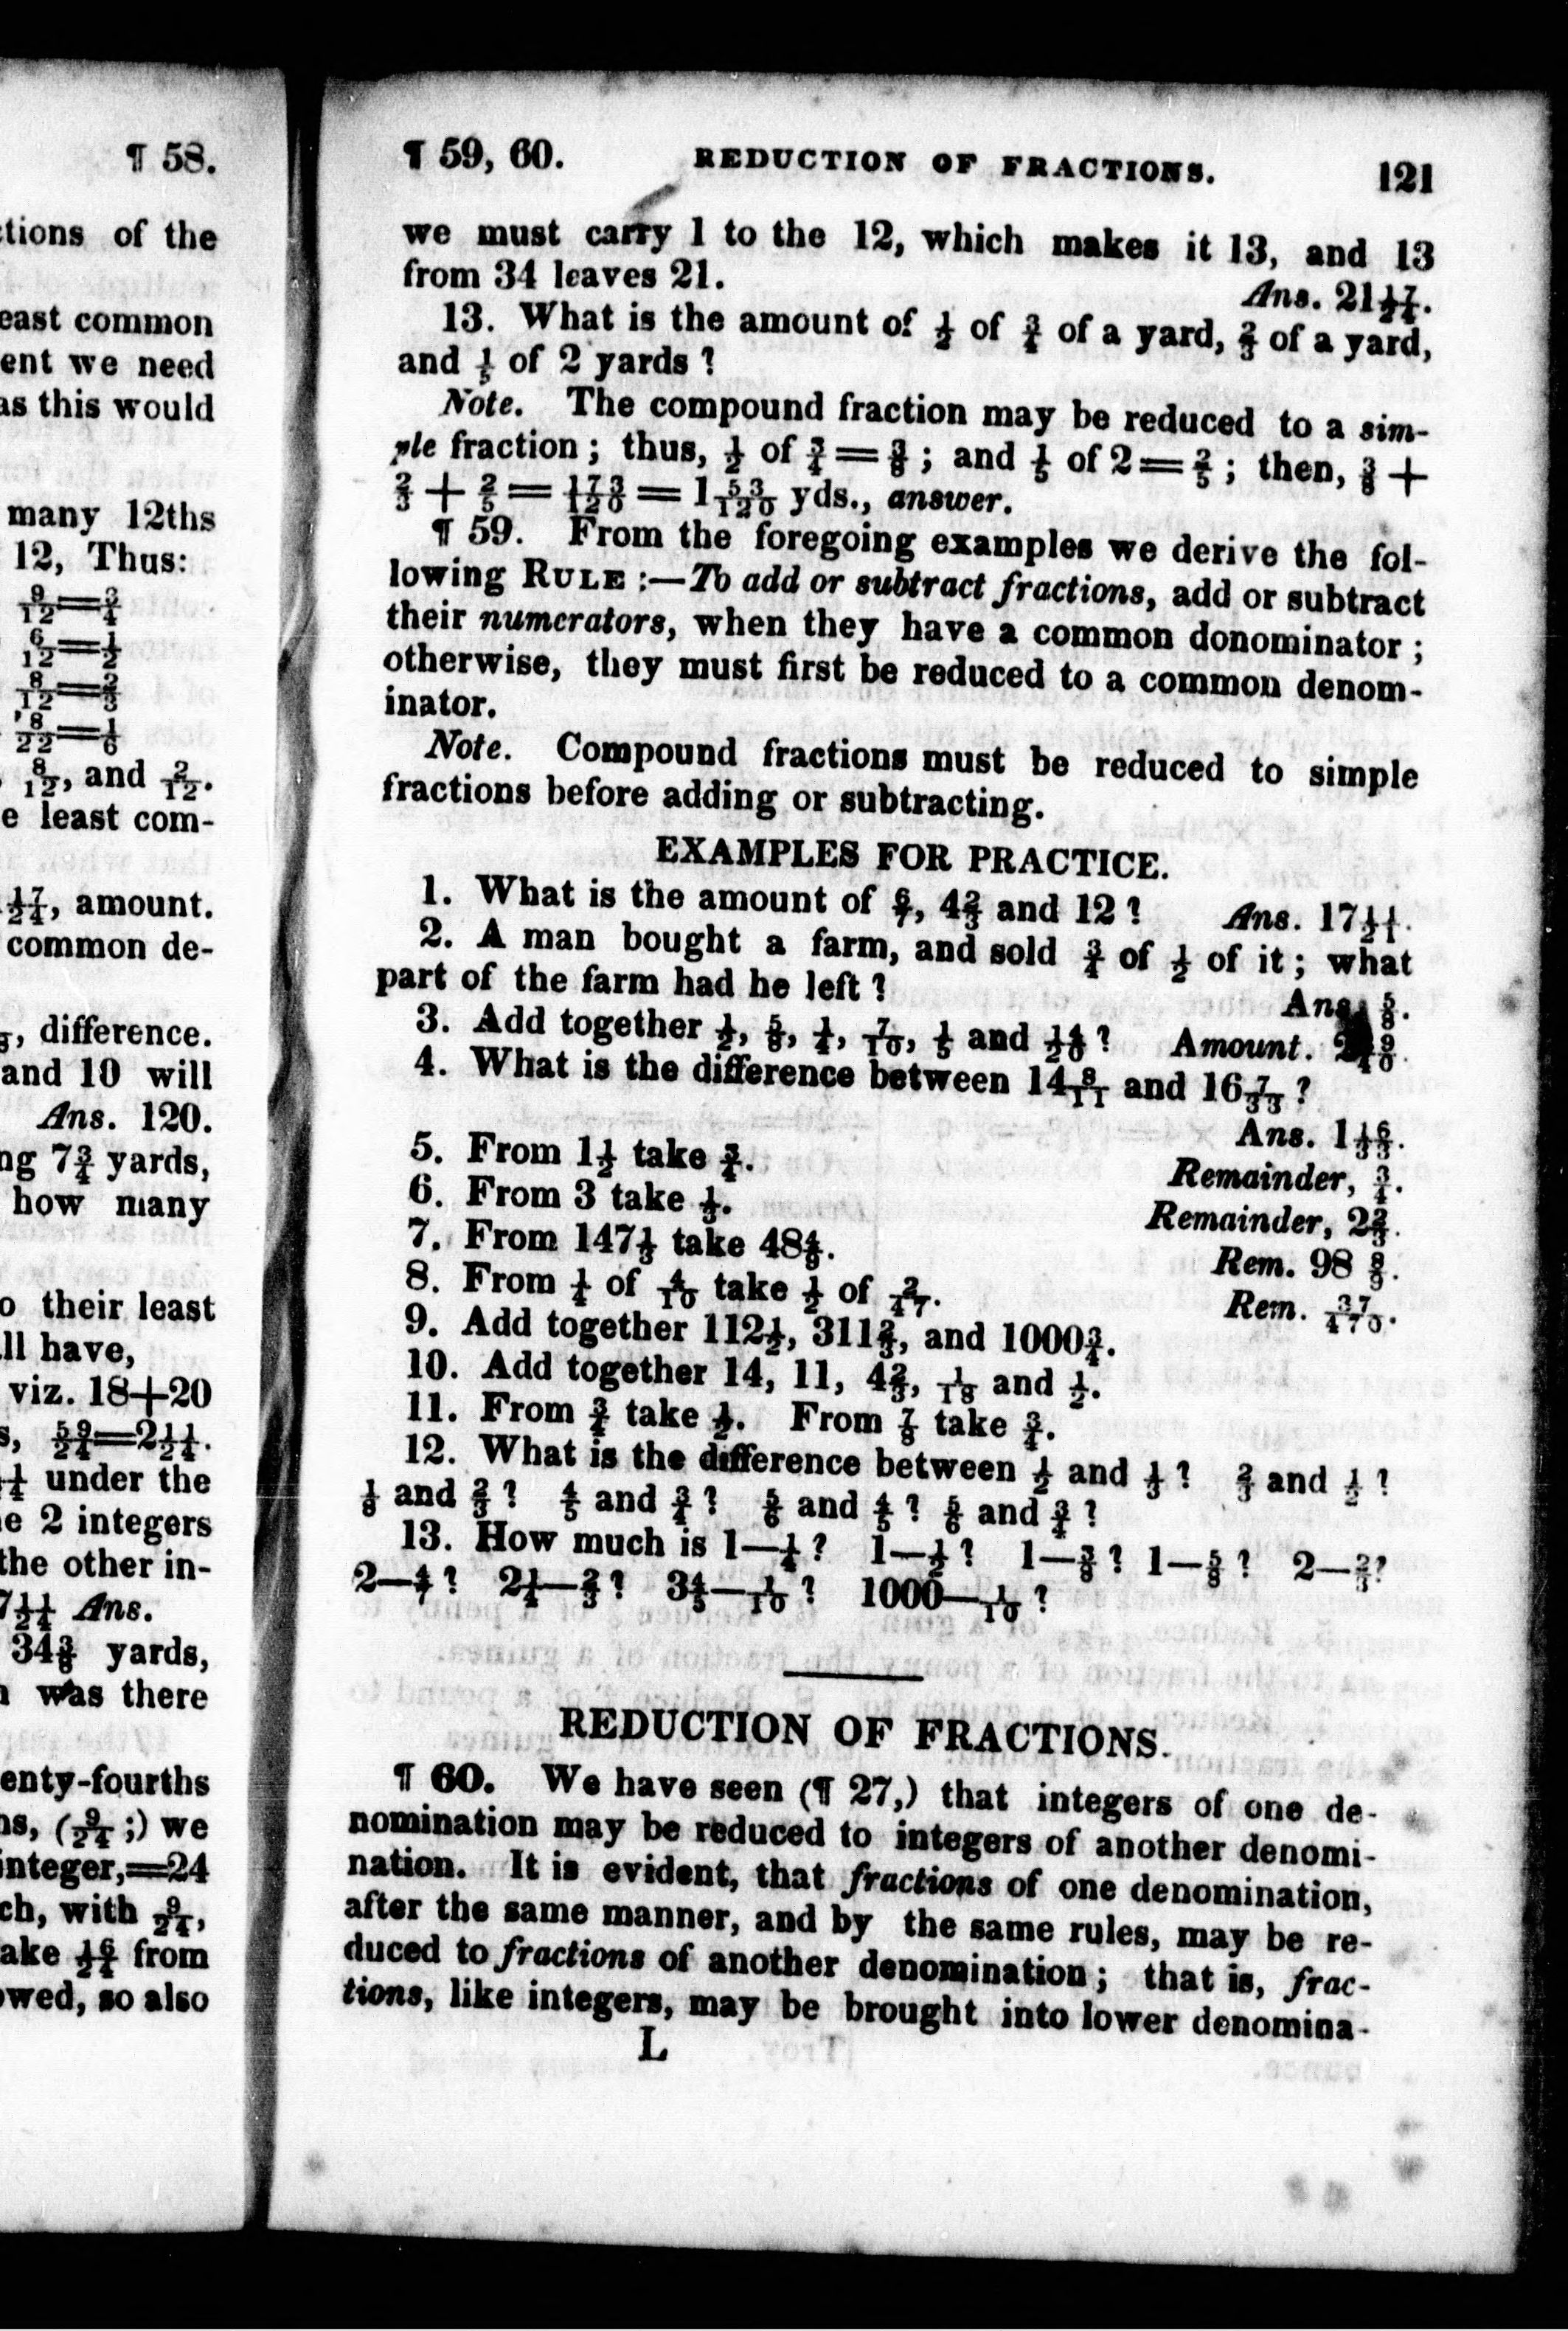 ¶ 58.
tions of the
east common
ent we need
as this would
many 12ths
12, Thus:
9/12=3/4
6/12=1/2
8/12=2/3
'8/22=1/6
8/12, and 2/12.
e least com-
17/24, amount.
common de-
, difference.
and 10 will
Ans. 120.
ng 7 3/4 yards,
how many
o their least
ll have,
viz. 18+20
s, 59/24=2 11/24.
under the
e 2 integers
the other in-
7 14/24 Ans.
34 3/8 yards,
was there
enty-fourths
ns, (9/24 ;) we
integer,=24
ch, with 9/24,
ake 16/24 from
owed, so also
¶ 59, 60. REDUCTION OF FRACTIONS. 121
we must carry 1 to the 12, which makes it 13, and 13
from 34 leaves 21. Ans. 21 17/24.
13. What is the amount of 1/2 of 3/4 of a yard, 2/3 of a yard,
and 1/5 of 2 yards ?
Note. The compound fraction may be reduced to a sim-
ple fraction ; thus, 1/2 of 3/4 = 3/8 ; and 1/5 of 2 = 2/5 ; then, 3/8 +
2/3 + 2/5 = 173/120 = 1 53/120 yds., answer.
¶ 59. From the foregoing examples we derive the fol-
lowing RULE :—To add or subtract fractions, add or subtract
their numerators, when they have a common donominator ;
otherwise, they must first be reduced to a common denom-
inator.
Note. Compound fractions must be reduced to simple
fractions before adding or subtracting.
EXAMPLES FOR PRACTICE.
1. What is the amount of 6/7, 4 2/3 and 12 ? Ans. 17 11/21.
2. A man bought a farm, and sold 3/4 of 1/2 of it ; what
part of the farm had he left ? Ans. 5/8.
3. Add together 1/2, 5/8, 1/4, 7/10, 1/5 and 14/20 ? Amount.
4. What is the difference between 14 8/11 and 16 7/33 ?
Ans. 1 16/33.
5. From 1 1/2 take 3/4. Remainder, 3/4.
6. From 3 take 1/3. Remainder, 2 2/3.
7. From 147 1/3 take 48 4/9. Rem. 98 8/9.
8. From 1/4 of 4/10 take 1/2 of 2/47. Rem. 37/470.
9. Add together 112 1/2, 311 2/3, and 1000 3/4.
10. Add together 14, 11, 4 2/3, 1/18 and 1/2.
11. From 3/4 take 1/2. From 7/8 take 3/4.
12. What is the difference between 1/2 and 1/3 ? 2/3 and 1/2 ?
1/8 and 2/3 ? 4/5 and 3/4 ? 5/6 and 4/5 ? 5/6 and 3/4 ?
13. How much is 1—1/4 ? 1—1/2 ? 1—3/8 ? 1—5/8 ? 2—2/3?
2—4/7 ? 2 1/4—2/3 ? 3 4/5—1/10 ? 1000—1/10 ?
REDUCTION OF FRACTIONS.
¶ 60. We have seen (¶ 27,) that integers of one de-
nomination may be reduced to integers of another denomi-
nation. It is evident, that fractions of one denomination,
after the same manner, and by the same rules, may be re-
duced to fractions of another denomination ; that is, frac-
tions, like integers, may be brought into lower denomina-
L